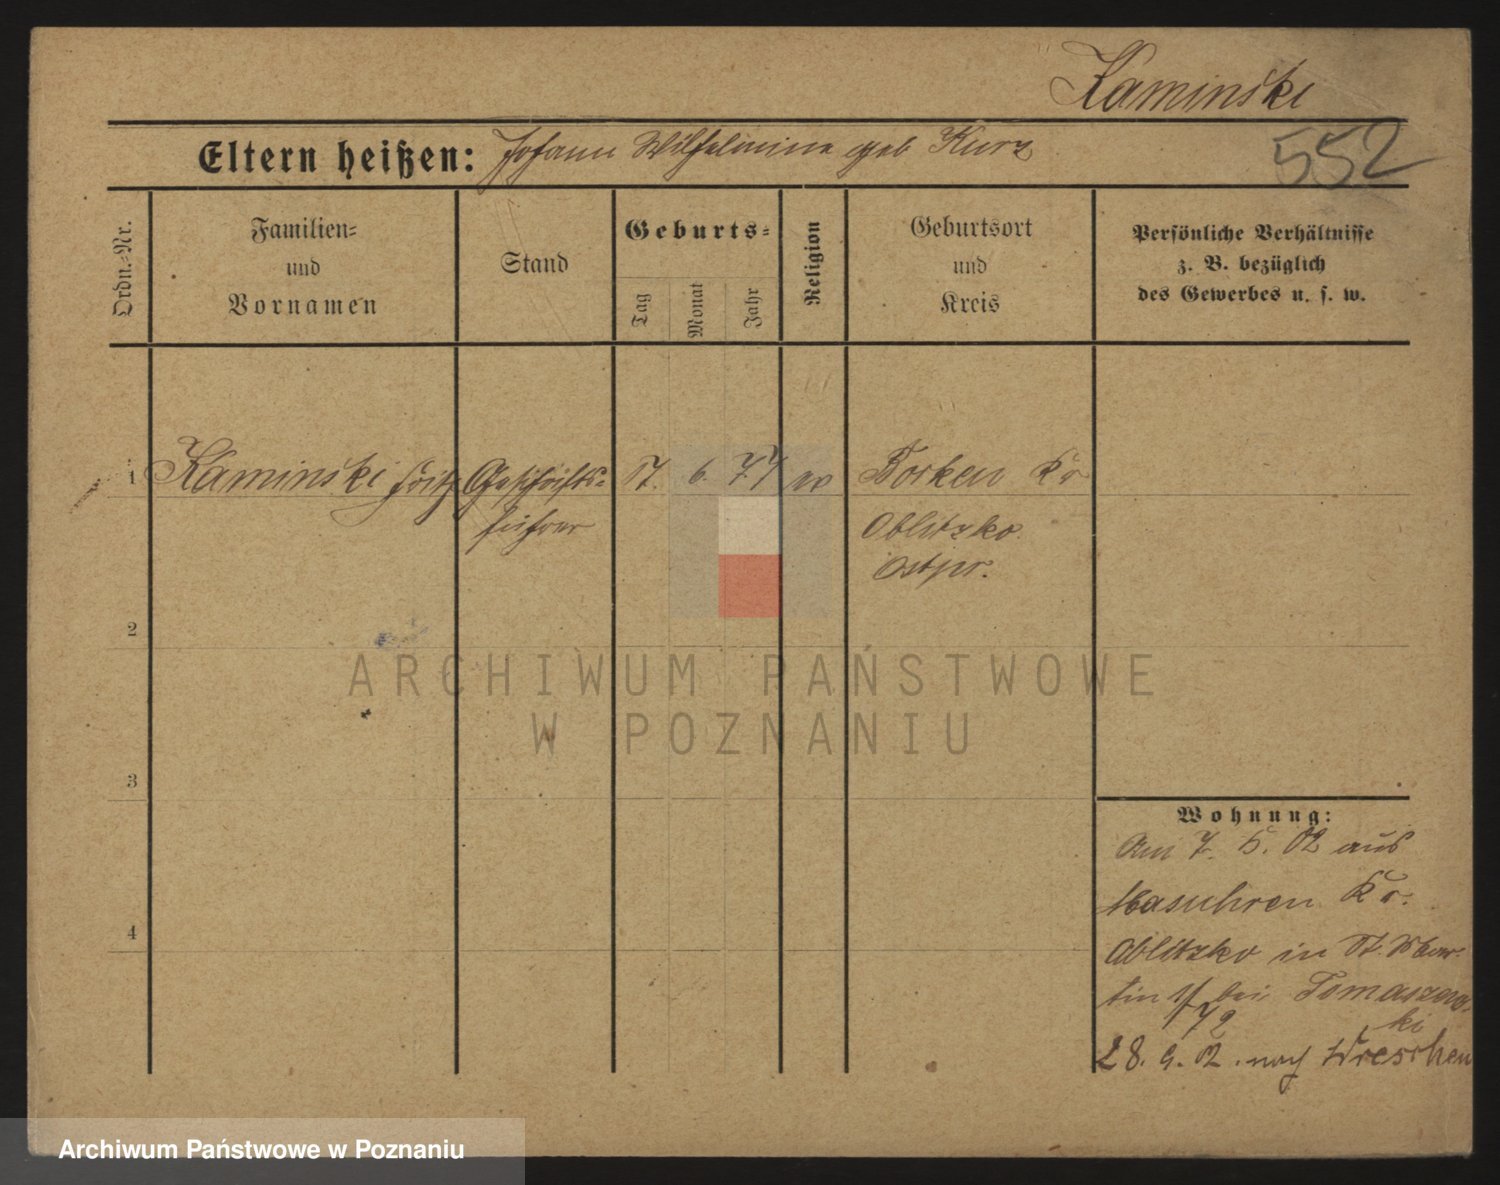 Kaminski
552
Eltern heißen: Johann Wilhelmine geb Kurz
Ordn.-Nr.
Familien-
und
Vornamen
Stand
Geburts-
Tag
Monat
Jahr
Religion
Geburtsort
und
Kreis
Persönliche Verhältnisse
z. B. bezüglich
des Gewerbes u. s. w.
1 Kaminski Fritz Geschäfts- 17. 6. 77 ev Borken Kr
führer Oblitzko.
Ostpr.
2
ARCHIWUM PAŃSTWOWE
W POZNANIU
3
Wohnung:
Am 7. 5. 02 aus
Masuhren Kr.
4
Oblitzko in St. Mar-
tin bei Tomaszews-
72 ki
28. 9. 02. nach Wreschen
Archiwum Państwowe w Poznaniu